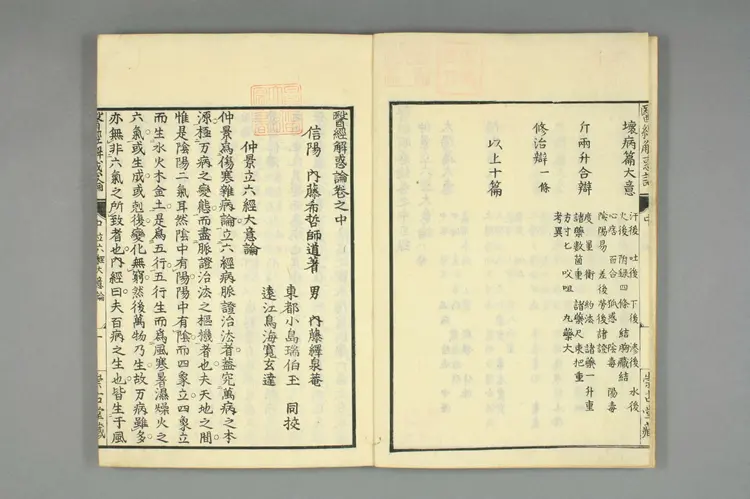 壞病篇大意
汗後 吐後 下後 滲後 水後
火後 附録四條 結胸臟結
心痞 百合 狐惑 陰毒 陽毒
陰陽易 差後勞後諸證
斤兩升合辯
度量衡 約法 諸藥一升重
諸藥數箇重 諸藥尺束把重
方寸匕 㕮咀 丸藥大
考異
修治辯一條
以上十篇
醫經解惑論卷之中
信陽 內藤希哲師道著 男 內藤繹泉菴
東都小島瑞伯玉 同挍
遠江鳥海寬玄達
仲景立六經大意論
仲景爲傷寒雜病論立六經病脈證治法者蓋究萬病之本
源極万病之變態而盡脈證治法之樞機者也夫天地之間
惟是陰陽二氣耳然陰中有陽陽中有陰而四象立四象立
而生水火木金土是爲五行五行生而爲風寒暑濕燥火之
六氣或生成或剋後變化無窮然後萬物乃生故万病雖多
亦無非六氣之所致者也內經曰夫百病之生也皆生于風
醫經解惑論 中 立六經大意論 一 崇古堂藏